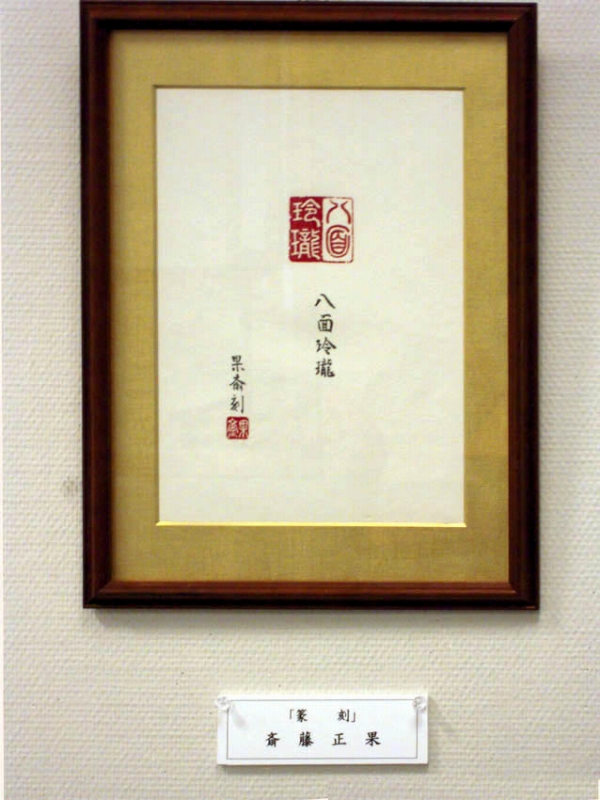 八面玲瓏
八面玲瓏
果斎刻
「篆刻」
斎藤正果